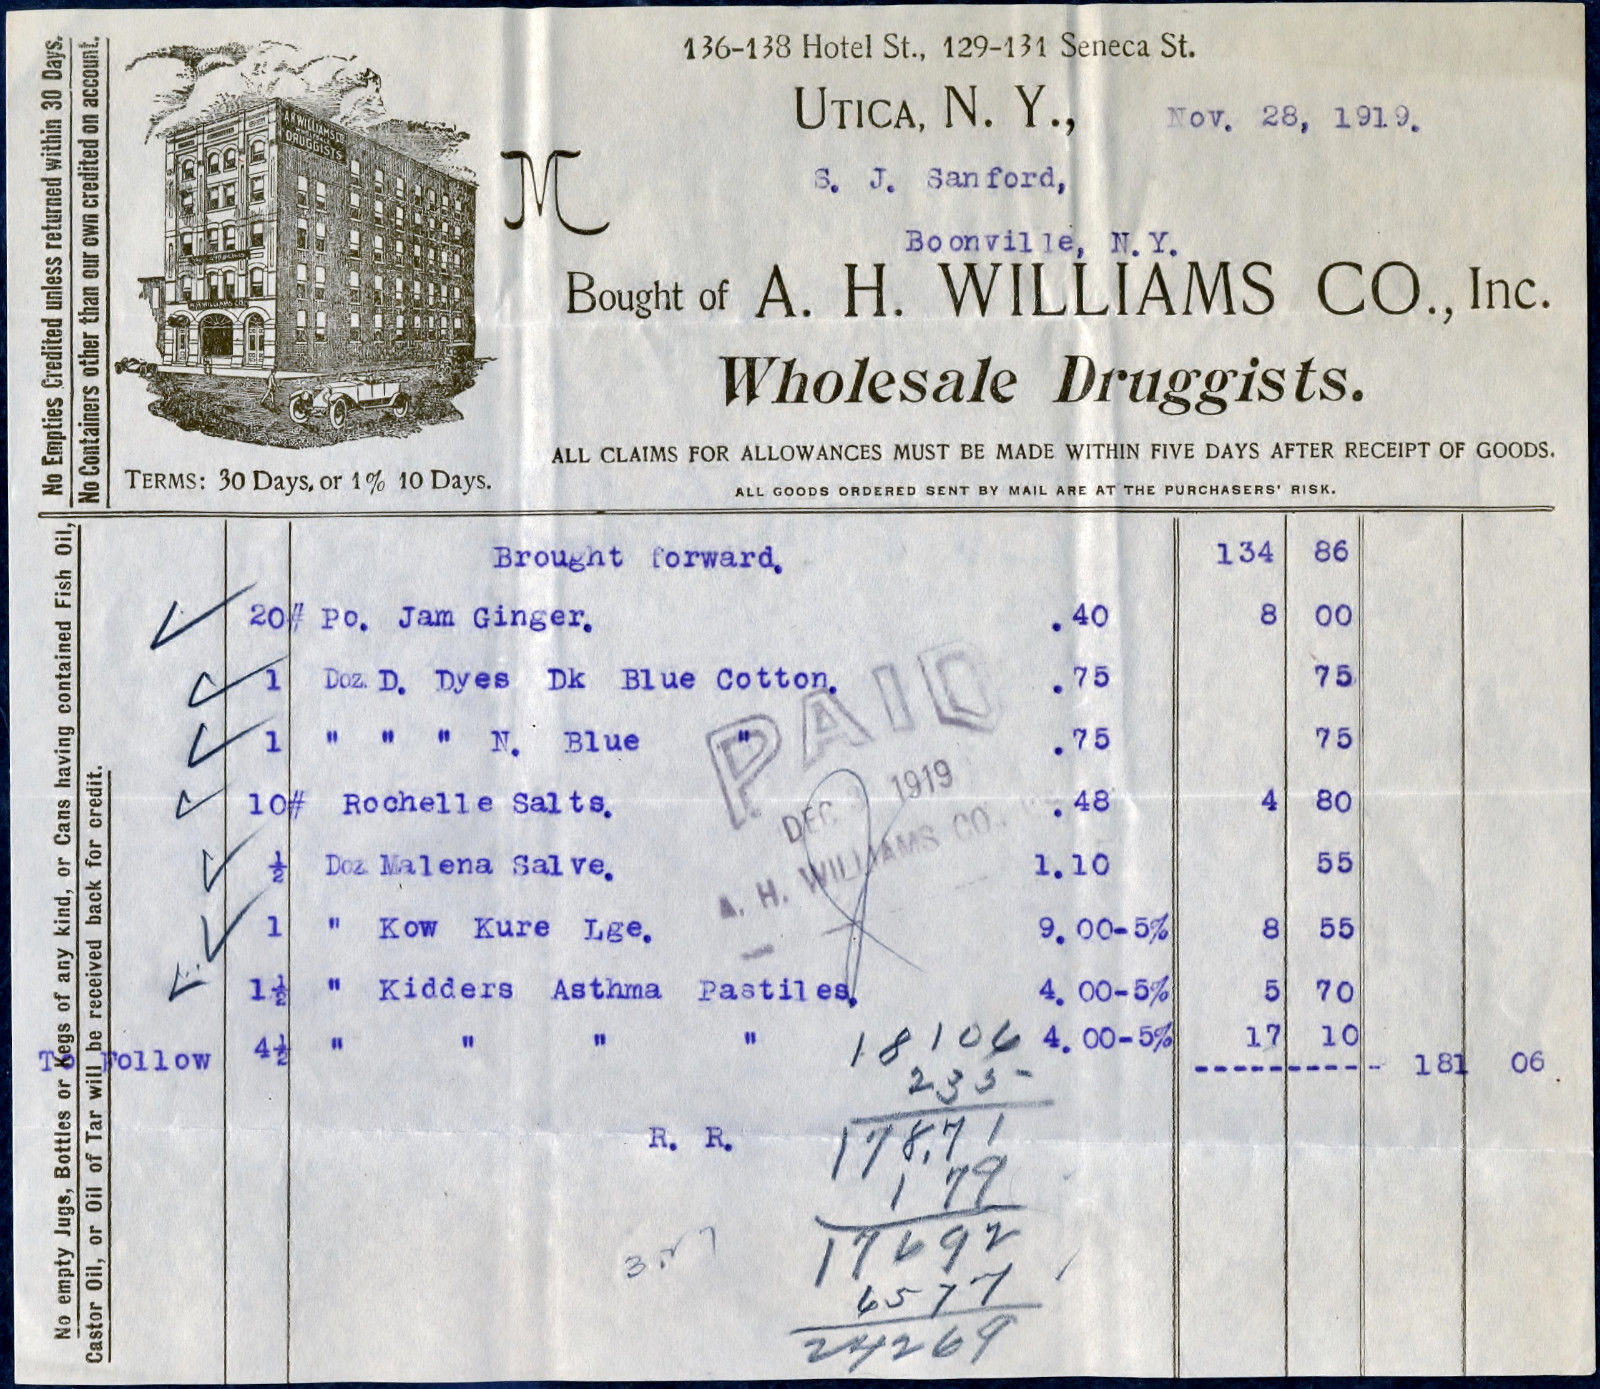 136-138 Hotel St., 129-131 Seneca St.
UTICA, N. Y., Nov. 28, 1919.
M S. J. Sanford,
Boonville, N.Y.
Bought of A. H. WILLIAMS CO., Inc.
Wholesale Druggists.
ALL CLAIMS FOR ALLOWANCES MUST BE MADE WITHIN FIVE DAYS AFTER RECEIPT OF GOODS.
ALL GOODS ORDERED SENT BY MAIL ARE AT THE PURCHASERS' RISK.
No Empties Credited unless returned within 30 Days.
No Containers other than our own credited on account.
A.H. WILLIAMS CO.
DRUGGISTS
TERMS: 30 Days, or 1% 10 Days.
No empty Jugs, Bottles or Kegs of any kind, or Cans having contained Fish Oil,
Castor Oil, or Oil of Tar will be received back for credit.
Brought forward. 134 86
20# Po. Jam Ginger. .40 8 00
1 Doz. D. Dyes Dk Blue Cotton. .75 75
1 " " " N. Blue " .75 75
10# Rochelle Salts. .48 4 80
½ Doz Malena Salve. 1.10 55
1 " Kow Kure Lge. 9.00-5% 8 55
1½ " Kidders Asthma Pastiles. 4.00-5% 5 70
To Follow 4½ " " " " 4.00-5% 17 10
181 06
R. R.
PAID
DEC 1919
A. H. WILLIAMS CO.
18106
235
178.71
179
17692
6577
24269